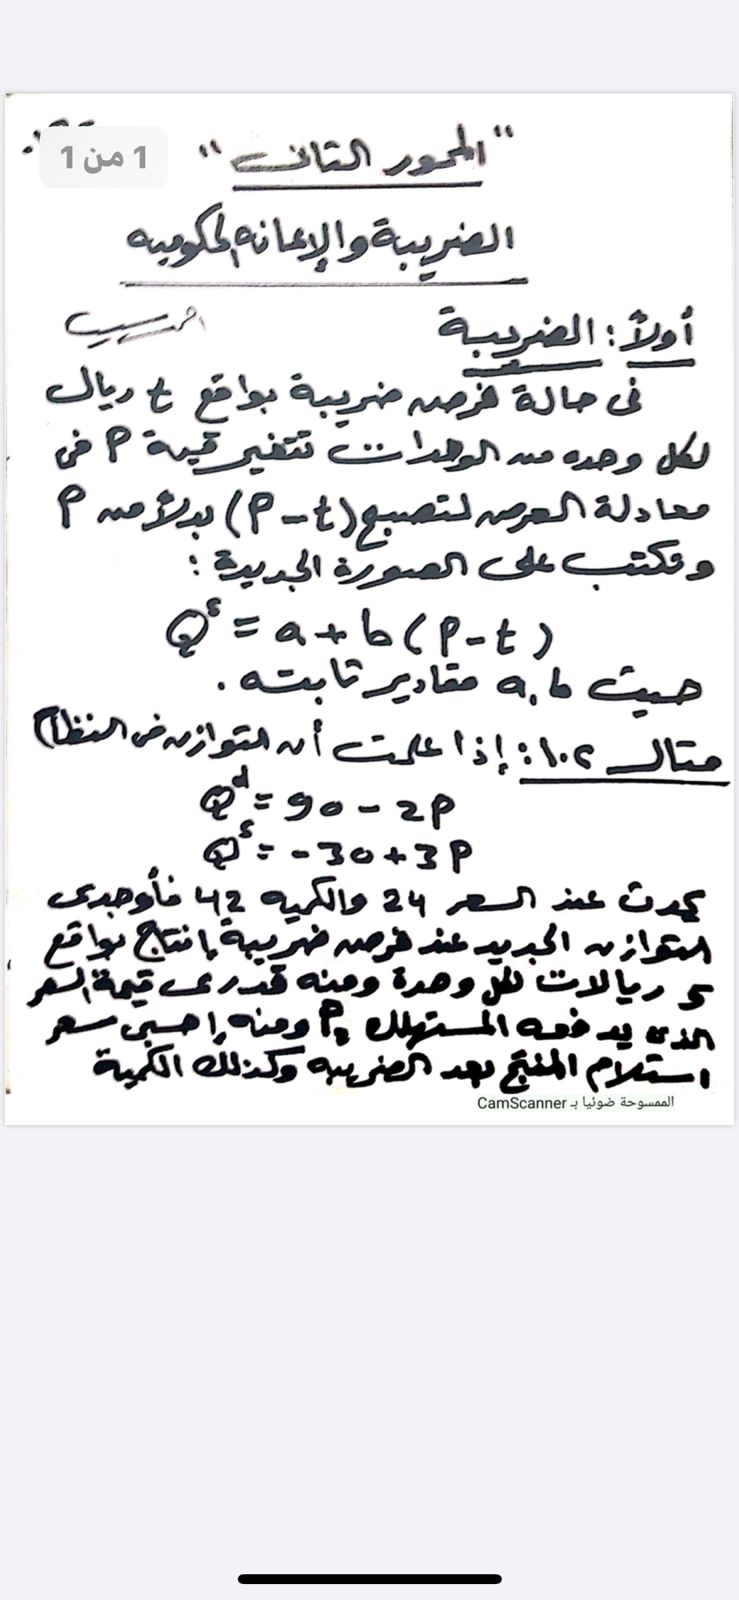 1 من 1
"المحور الثاني"
الضريبة والإعانه الحكوميه
أولاً: الضريبة
فى حالة فرض ضريبة بواقع t ريال
لكل وحده من الوحدات تتغير قيمة P فى
معادلة العرض لتصبح (P-t) بدلاً من P
وتكتب على الصورة الجديدة:
Qˢ = a + b (P-t)
حيث a, b مقادير ثابته.
مثال ١٠٢: إذا علمت أن التوازن فى النظام
Qᵈ = 90 - 2P
Qˢ = -30 + 3P
يحدث عند السعر 24 والكميه 42 فأوجدى
التوازن الجديد عند فرض ضريبة إنتاج بواقع
5 ريالات لكل وحدة ومنه قدرى قيمة السعر
الذى يدفعه المستهلك P₂ ومنه إحسبى سعر
استلام المنتج بعد الضريبه وكذلك الكمية
الممسوحة ضوئيا بـ CamScanner